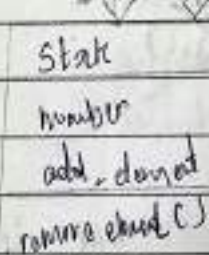 Stack
number
add_element
remove element ()